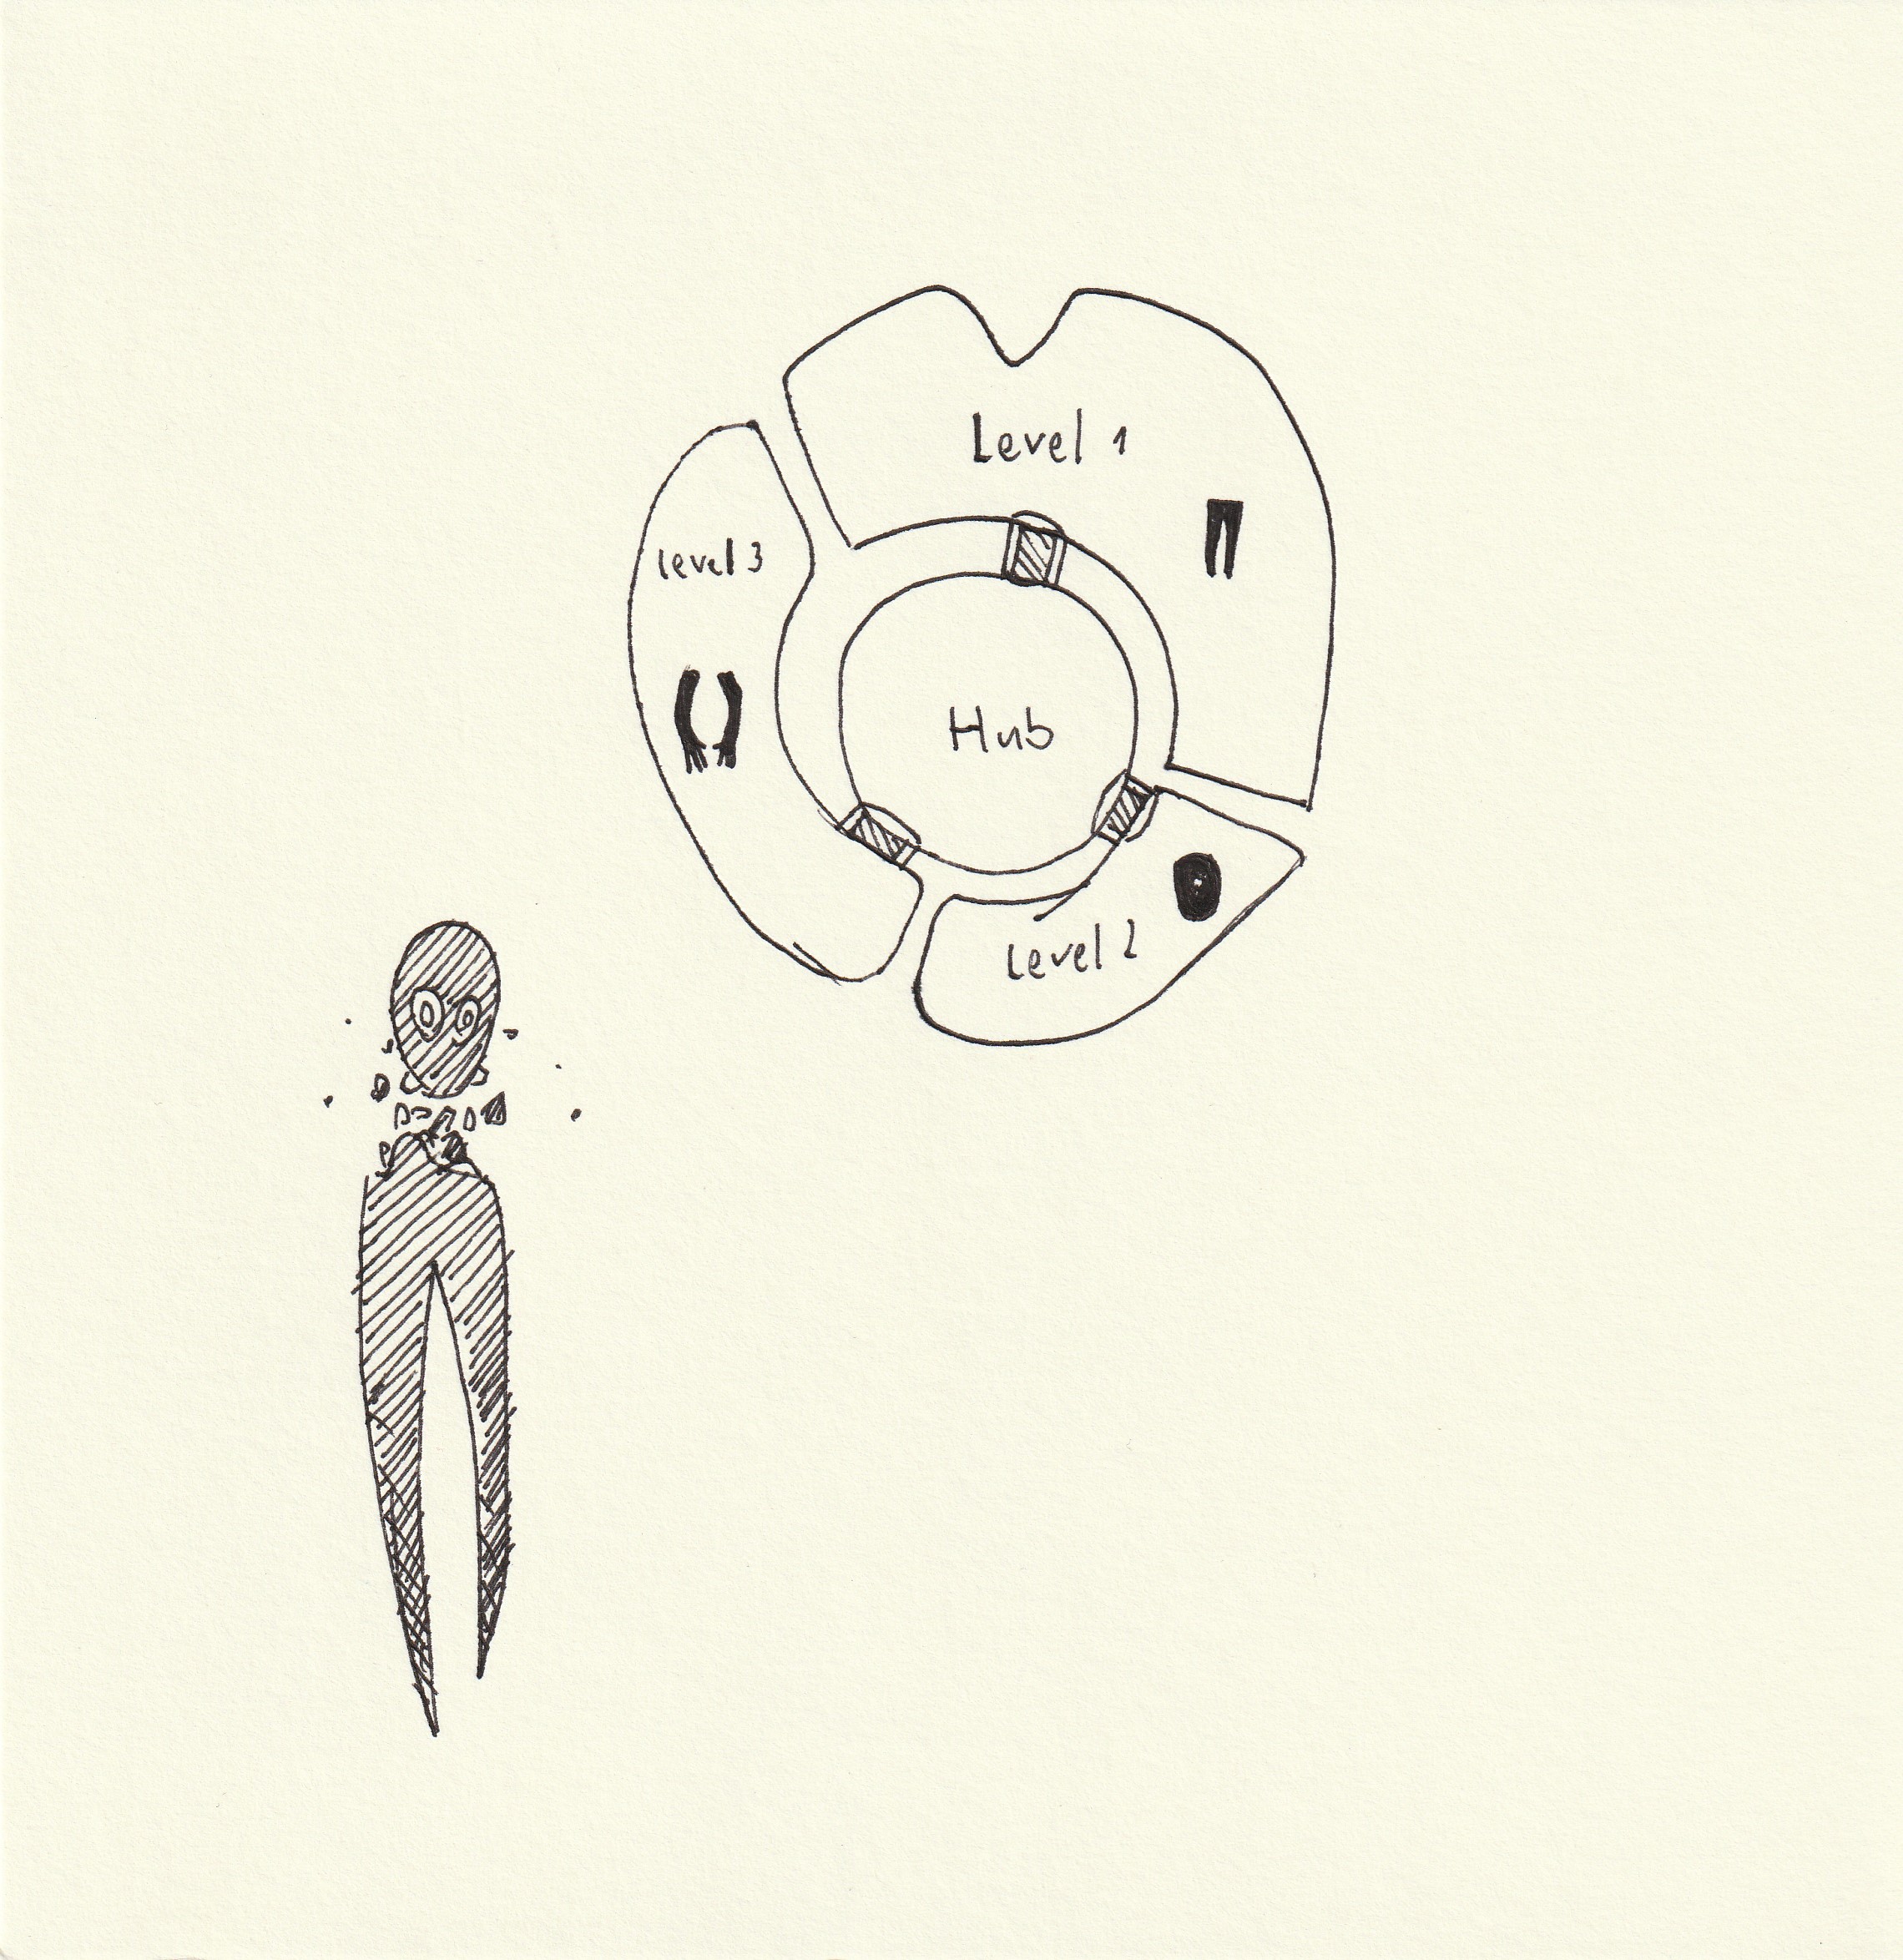 Level 1
Level 3
Hub
Level 2